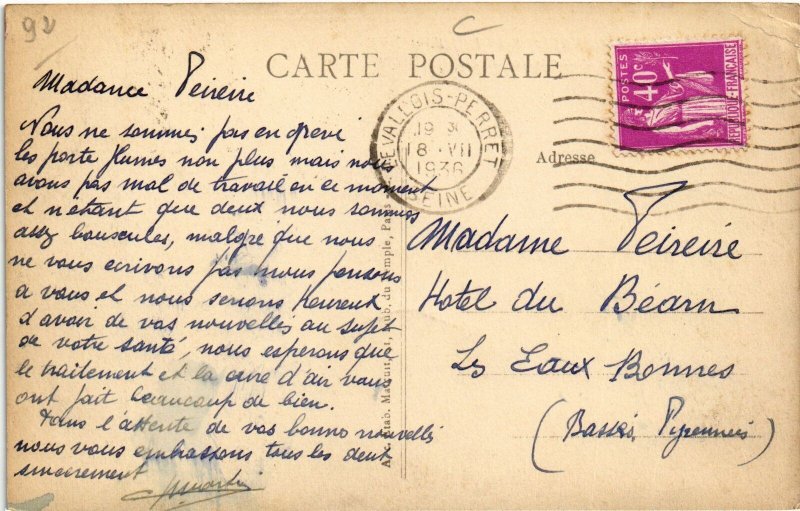 92
CARTE POSTALE
Madame Peireire
Nous ne sommes pas en greve
les porte plumes non plus mais nous
avons pas mal de travail en ce moment
et n'étant que deux nous sommes
assez bousculés, malgré que nous
ne vous ecrivons pas nous pensons
a vous et nous serions heureux
d'avoir de vos nouvelles au sujet
de votre santé, nous esperons que
le traitement et la cure d'air vous
ont fait beaucoup de bien.
Dans l'attente de vos bonnes nouvelles
nous vous embrassons tous les deux
sincerement
Martin
LEVALLOIS-PERRET
19
18 · VII
1936
SEINE
POSTES
40c
REPUBLIQUE·FRANÇAISE
Adresse
Madame Peireire
Hotel du Béarn
Les Eaux Bonnes
(Basses Pyrennées)
du Temple, Paris